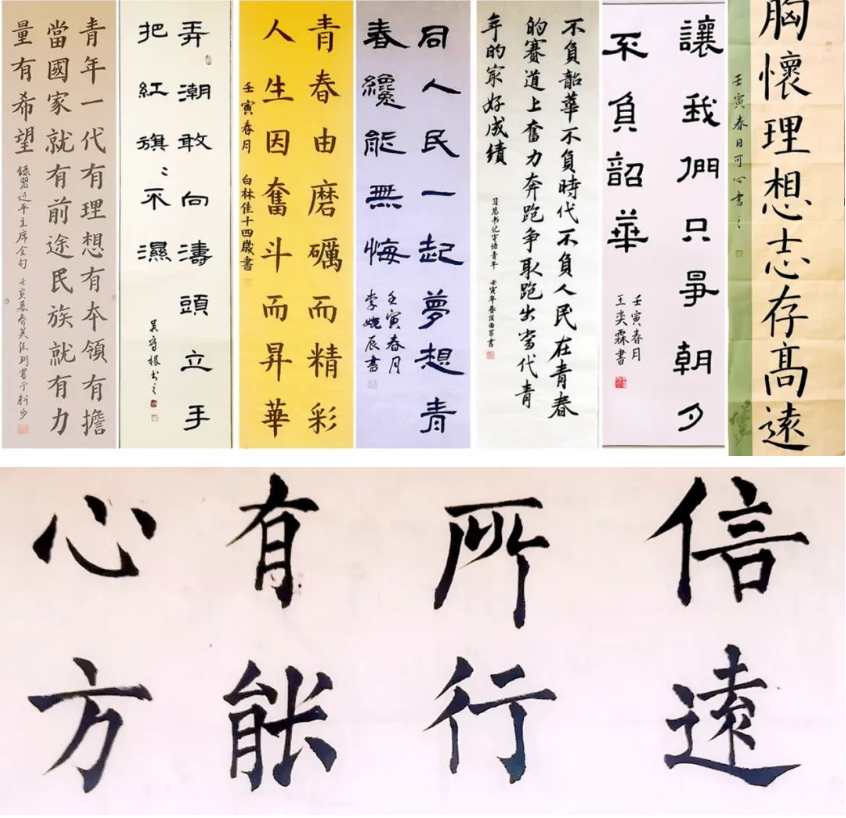 青年一代有理想有本領有擔
當國家就有前途民族就有力
量有希望
錄習近平主席金句
弄潮敢向濤頭立手
把紅旗〻不濕
青春由磨礪而精彩
人生因奮斗而昇華
壬寅春月 白林佳十四歲書
同人民一起夢想青
春纔能無悔
壬寅春月
李婉辰書
不負韶華不負時代不負人民在青春
的賽道上奮力奔跑争取跑出當代青
年的最好成績
习总书记寄语青年 壬寅年春
讓我們只爭朝夕
不負韶華
壬寅春月
王奕霖書
胸懷理想志存高遠
壬寅春日可心書
心有所信
方能行遠